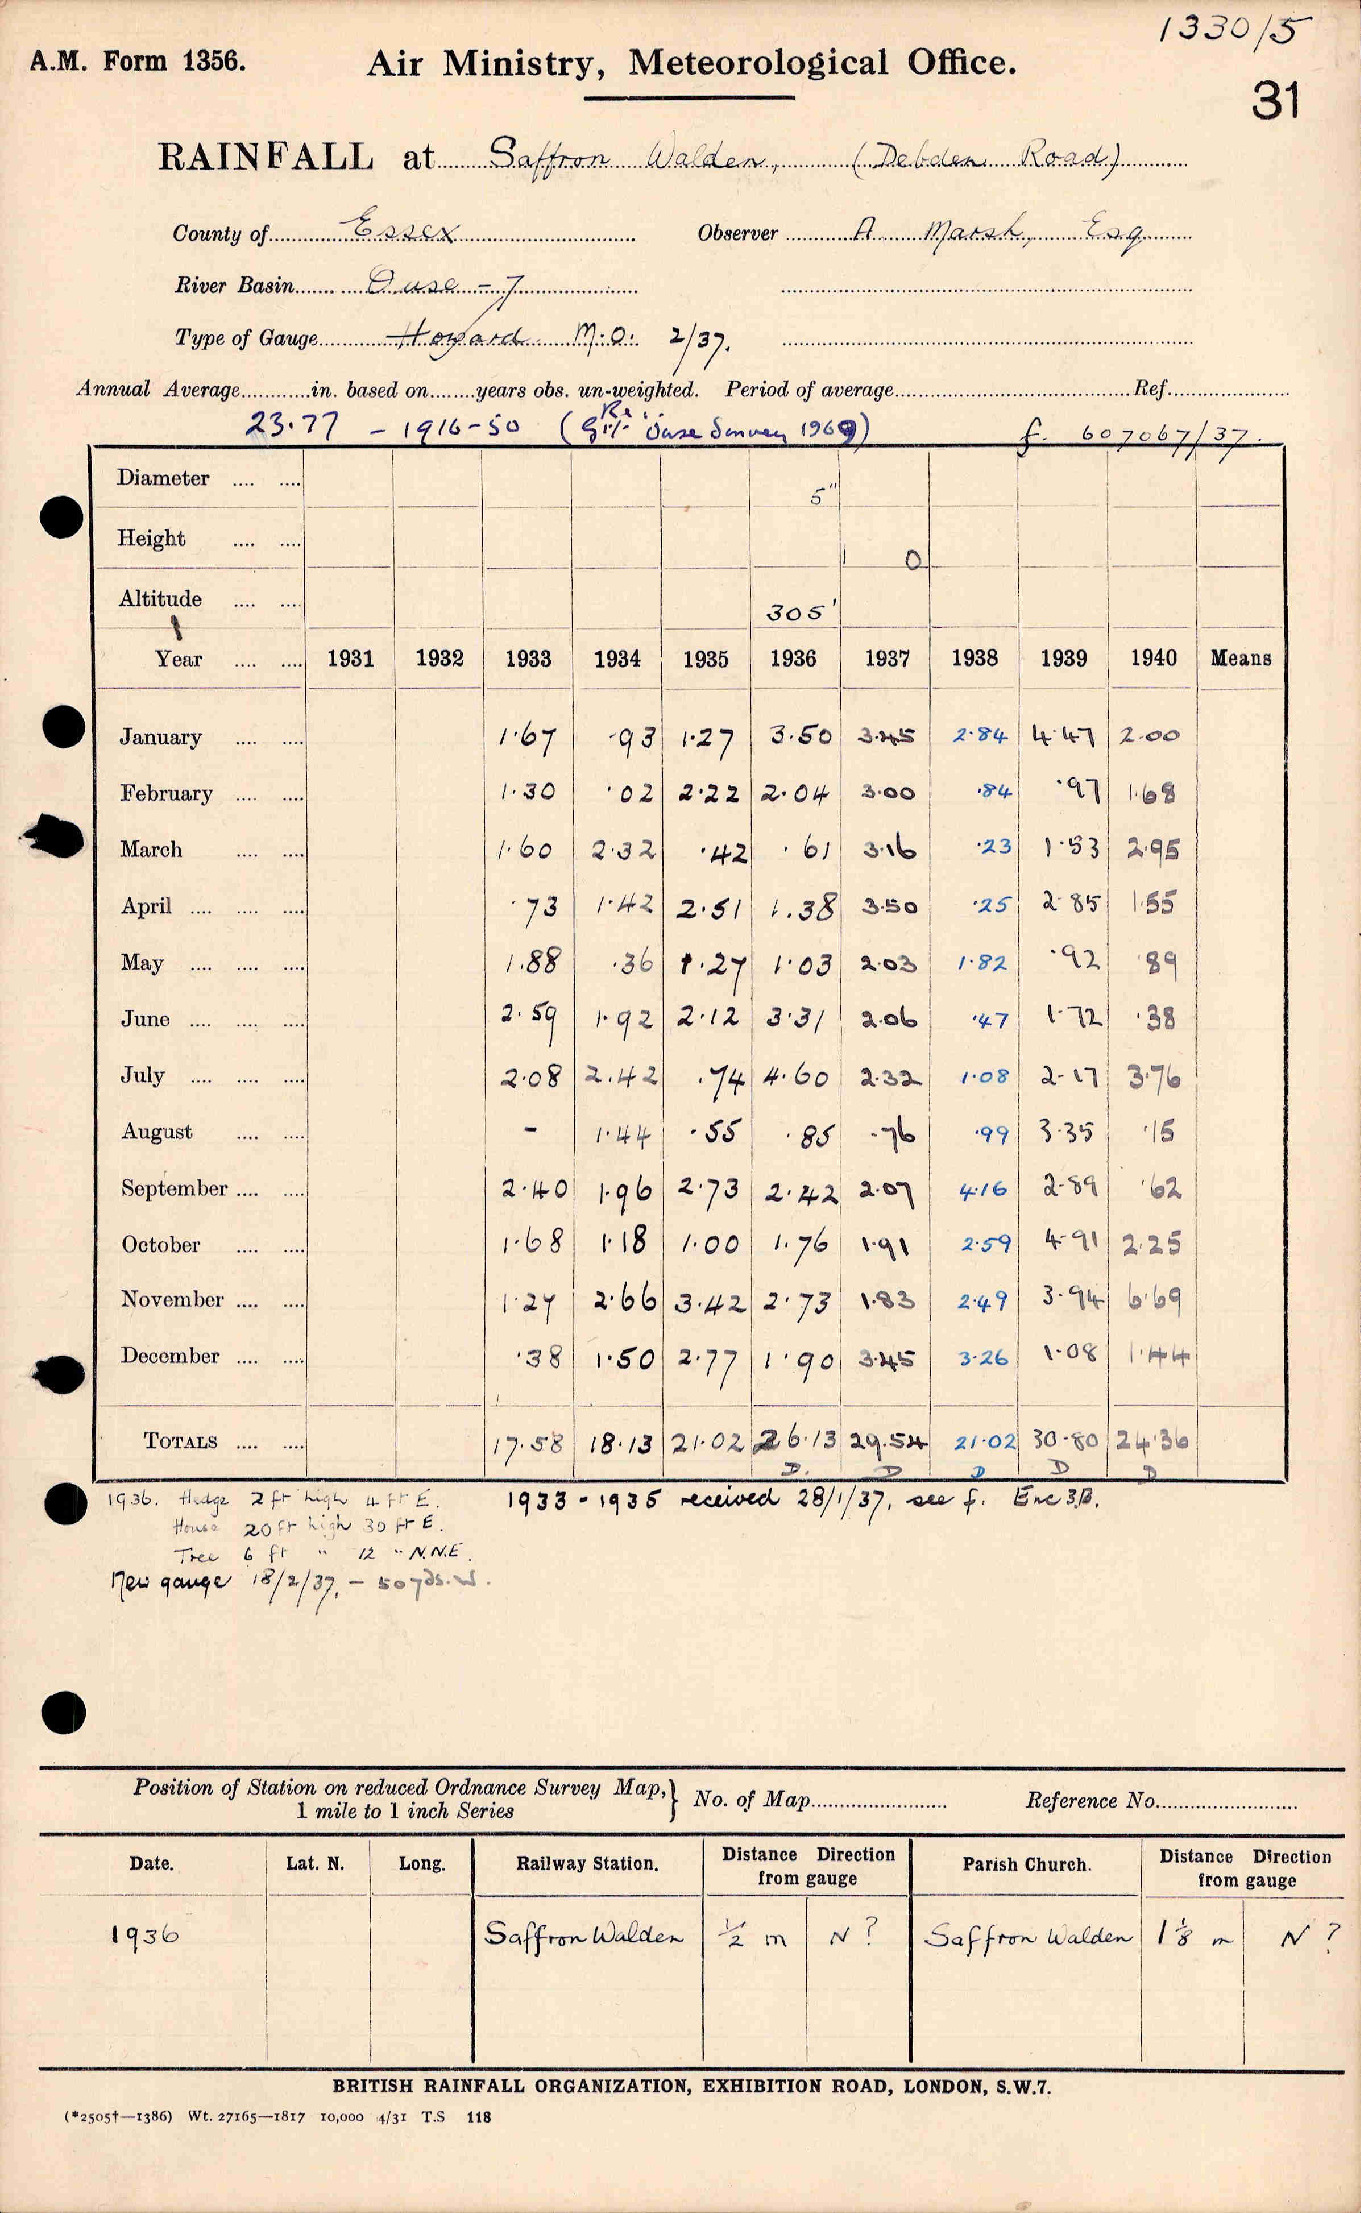 1330/5
A.M. Form 1356.
Air Ministry, Meteorological Office.
31
RAINFALL at Saffron Walden, (Debden Road)
County of Essex Observer A Marsh, Esq
River Basin Ouse - 7
Type of Gauge Howard M.O. 2/37.
Annual Average in. based on years obs. un-weighted. Period of average Ref.
23.77 - 1916-50 ( Ouse Survey 1969) f. 607067/37.
Diameter 5"
Height 1 0
Altitude 305'
Year 1931 1932 1933 1934 1935 1936 1937 1938 1939 1940 Means
January 1.67 .93 1.27 3.50 3.45 2.84 4.47 2.00
February 1.30 .02 2.22 2.04 3.00 .84 .97 1.68
March 1.60 2.32 .42 .61 3.16 .23 1.53 2.95
April .73 1.42 2.51 1.38 3.50 .25 2.85 1.55
May 1.88 .36 1.27 1.03 2.03 1.82 .92 .89
June 2.59 1.92 2.12 3.31 2.06 .47 1.72 .38
July 2.08 2.42 .74 4.60 2.32 1.08 2.17 3.76
August - 1.44 .55 .85 .76 .99 3.35 .15
September 2.40 1.96 2.73 2.42 2.07 4.16 2.89 .62
October 1.68 1.18 1.00 1.76 1.91 2.59 4.91 2.25
November 1.27 2.66 3.42 2.73 1.83 2.49 3.94 6.69
December .38 1.50 2.77 1.90 3.45 3.26 1.08 1.44
TOTALS 17.58 18.13 21.02 26.13 29.54 21.02 30.80 24.36
D. D D D D
1936. Hedge 2 ft high 4 ft E. 1933-1935 received 28/1/37, see f. Enc 3B.
House 20 ft high 30 ft E.
Tree 6 ft " 12 " N.N.E.
New gauge 18/2/37, - 50 yds. W.
Position of Station on reduced Ordnance Survey Map, 1 mile to 1 inch Series } No. of Map Reference No.
Date. Lat. N. Long. Railway Station. Distance Direction from gauge Parish Church. Distance Direction from gauge
1936 Saffron Walden ½ m N ? Saffron Walden 1⅛ m N ?
BRITISH RAINFALL ORGANIZATION, EXHIBITION ROAD, LONDON, S.W.7.
(*2505†—1386) Wt. 27165—1817 10,000 4/31 T.S 118